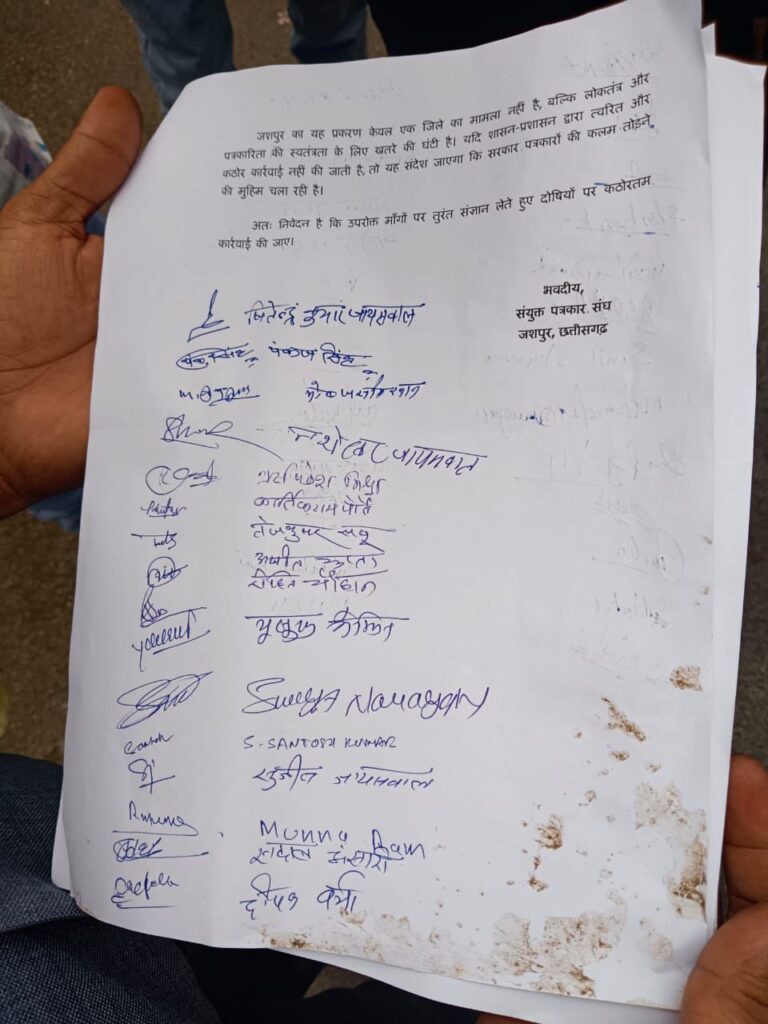 जशपुर का यह प्रकरण केवल एक जिले का मामला नहीं है, बल्कि लोकतंत्र और
पत्रकारिता की स्वतंत्रता के लिए खतरे की घंटी है। यदि शासन-प्रशासन द्वारा त्वरित और
कठोर कार्रवाई नहीं की जाती है, तो यह संदेश जाएगा कि सरकार पत्रकारों की कलम तोड़ने
की मुहिम चला रही है।
अतः निवेदन है कि उपरोक्त माँगों पर तुरंत संज्ञान लेते हुए दोषियों पर कठोरतम
कार्रवाई की जाए।
भवदीय,
संयुक्त पत्रकार संघ
जशपुर, छत्तीसगढ़
जितेन्द्र कुमार जायसवाल
पंकज सिंह
जायसवाल
मिश्रा
कार्तिकराम
तेजकुमार साहू
अजीत गुप्ता
रोहित चौहान
Surya Narayan
Santosh S-SANTOSH KUMAR
सुजीत जायसवाल
Munna Ram
अंसारी
दीपक वर्मा